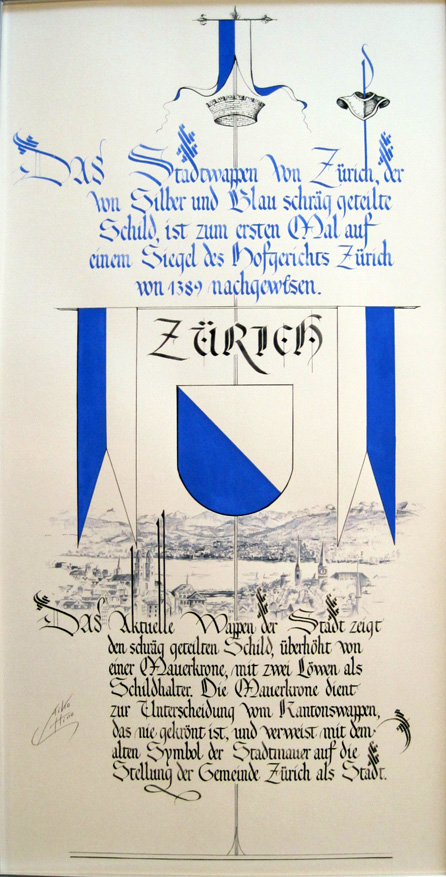 Das Stadtwappen von Zürich, der
von Silber und Blau schräg geteilte
Schild, ist zum ersten Mal auf
einem Siegel des Hofgerichts Zürich
von 1389 nachgewiesen.
ZÜRICH
Das Aktuelle Wappen der Stadt zeigt
den schräg geteilten Schild, überhöht von
einer Mauerkrone, mit zwei Löwen als
Schildhalter. Die Mauerkrone dient
zur Unterscheidung vom Kantonswappen,
das nie gekrönt ist, und verweist mit dem
alten Symbol der Stadtmauer auf die
Stellung der Gemeinde Zürich als Stadt.